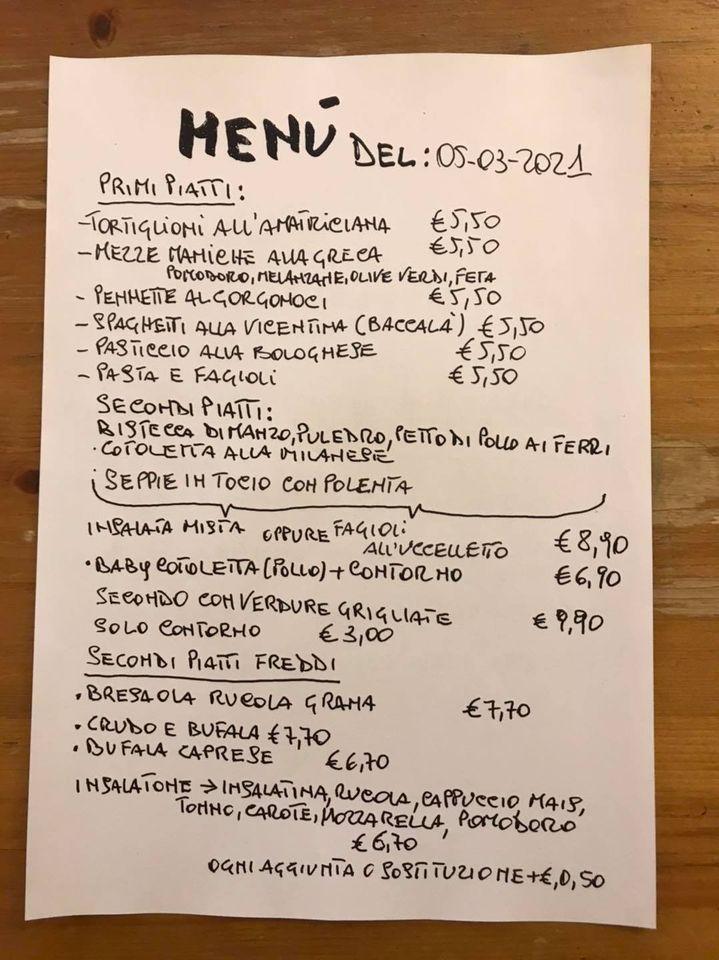 MENÚ DEL: 05-03-2021
PRIMI PIATTI:
- TORTIGLIONI ALL'AMATRICIANA €5,50
- MEZZE MANICHE ALLA GRECA €5,50
POMODORO, MELANZANE, OLIVE VERDI, FETA
- PENNETTE AL GORGONOCI €5,50
- SPAGHETTI ALLA VICENTINA (BACCALÀ) €5,50
- PASTICCIO ALLA BOLOGNESE €5,50
- PASTA E FAGIOLI €5,50
SECONDI PIATTI:
BISTECCA DI MANZO, PULEDRO, PETTO DI POLLO AI FERRI
· COTOLETTA ALLA MILANESE
SEPPIE IN TOCIO CON POLENTA
INSALATA MISTA OPPURE FAGIOLI
ALL'UCCELLETTO €8,90
· BABY COTOLETTA (POLLO) + CONTORNO €6,90
SECONDO CON VERDURE GRIGLIATE €9,90
SOLO CONTORNO €3,00
SECONDI PIATTI FREDDI
· BRESAOLA RUCOLA GRANA €7,70
· CRUDO E BUFALA €7,70
· BUFALA CAPRESE €6,70
INSALATONE → INSALATINA, RUCOLA, CAPPUCCIO, MAIS,
TONNO, CAROTE, MOZZARELLA, POMODORO
€6,70
OGNI AGGIUNTA O SOSTITUZIONE +€,0,50